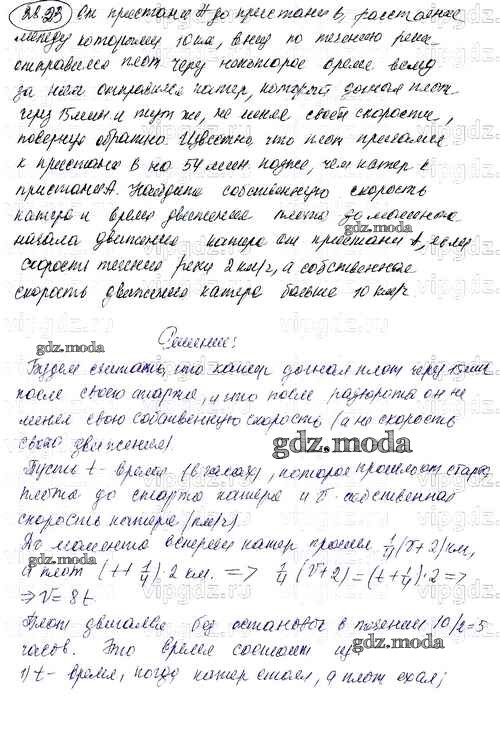 28.23 От пристани А до пристани В, расстояние
между которыми 10 км, вниз по течению реки
отправился плот через некоторое время вслед
за ним отправился катер, который догнал плот
через 15 мин и тут же, не меняя своей скорости,
повернул обратно. Известно что плот приплыл
к пристани В на 54 мин. позже, чем катер к
пристани А. Найдите собственную скорость
катера и время движения плота до момента
начала движения катера от пристани А, если
скорость течения реки 2 км/ч, а собственная
скорость движения катера больше 10 км/ч.
gdz.moda
Решение:
gdz.moda
Будем считать, что катер догнал плот через 15 мин
после своего старта, и что после разворота он не
менял свою собственную скорость (а не скорость
своего движения).
gdz.moda
Пусть t - время (в часах), которое прошло от старта
плота до старта катера и v - собственная
скорость катера (км/ч).
До момента встречи катер прошел 1/4 (v+2) км,
а плот (t + 1/4) · 2 км. => 1/4 (v+2) = (t + 1/4) · 2 =>
gdz.moda
=> v = 8t.
Плот двигался без остановок в течении 10/2=5
часов. Это время состоит из:
gdz.moda
1) t - время, когда катер стоял, а плот ехал;
vipgdz.ru